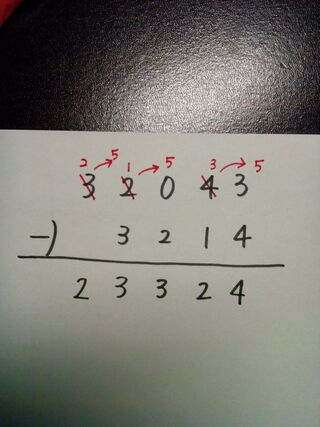 2 5 1 5 3 5
3 2 0 4 3
-) 3 2 1 4
2 3 3 2 4